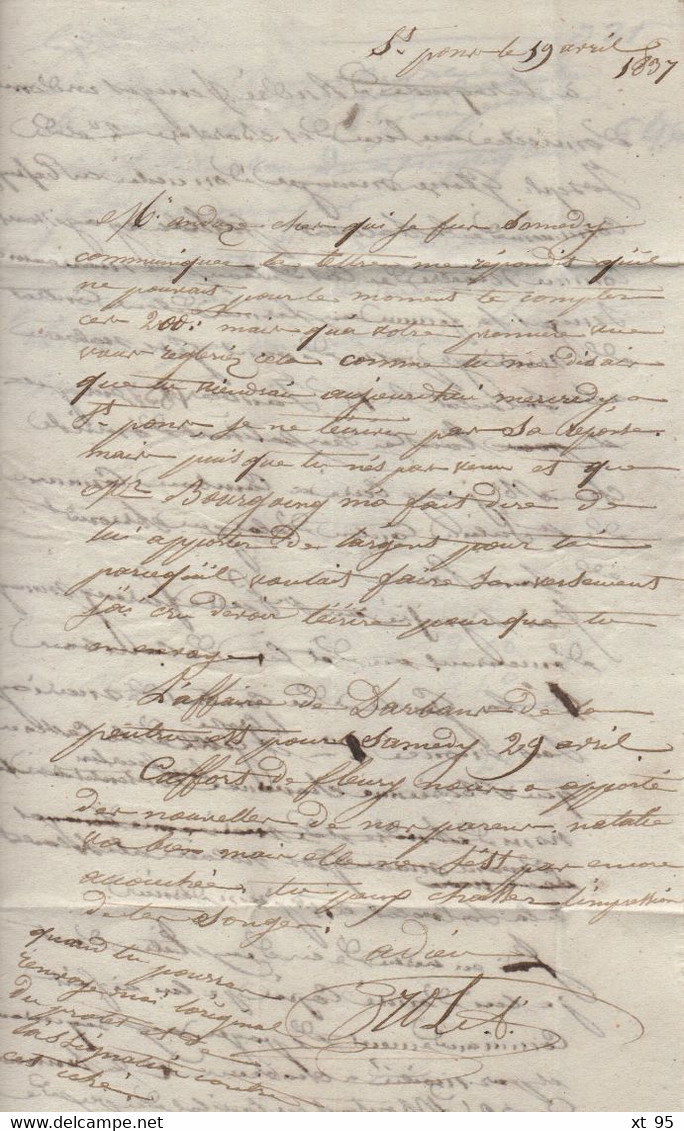 St pons le 19 avril
1837
Mr andoze cher qui je fus Samedy
communiquer ta lettre me répondit quil
ne pouvait pour le moment te compter
ces 200. mais qu'a votre premiere vue
vous régleriez cela comme tu me disais
que tu viendrais aujourd'hui mercredy a
St pons je ne técrivis pas Sa réponse.
mais puisque tu nés pas venu et que
Mr Bourgoing ma fait dire de
lui apporter de largent pour toi
parcequil voulait faire Son versement
jai cru devoir técrire pour que tu
menvoye.
L'affaire de Barbaux de la
est pour Samedy 29 avril
Caffort de fleury nous a apporté
des nouvelles de nos parens. natalie
va bien mais elle ne Sést pas encore
accouchée, tu peux chasser l'impression
de tes Songes.
adieu
quand tu pourras
renvoye moi loriginal
du protet et
lassignation contre